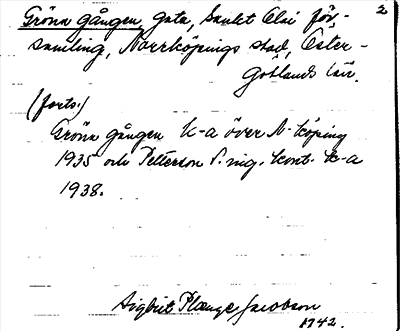 2
Gröna gången, gata, Sankt Olai för-
samling, Norrköpings stad, Öster-
götlands län.
(forts.)
Gröna gången K-a över N-köping
1935 och Petterson P. ing. kont. K-a
1938.
Sigbrit Plænge Jacobson
1942.